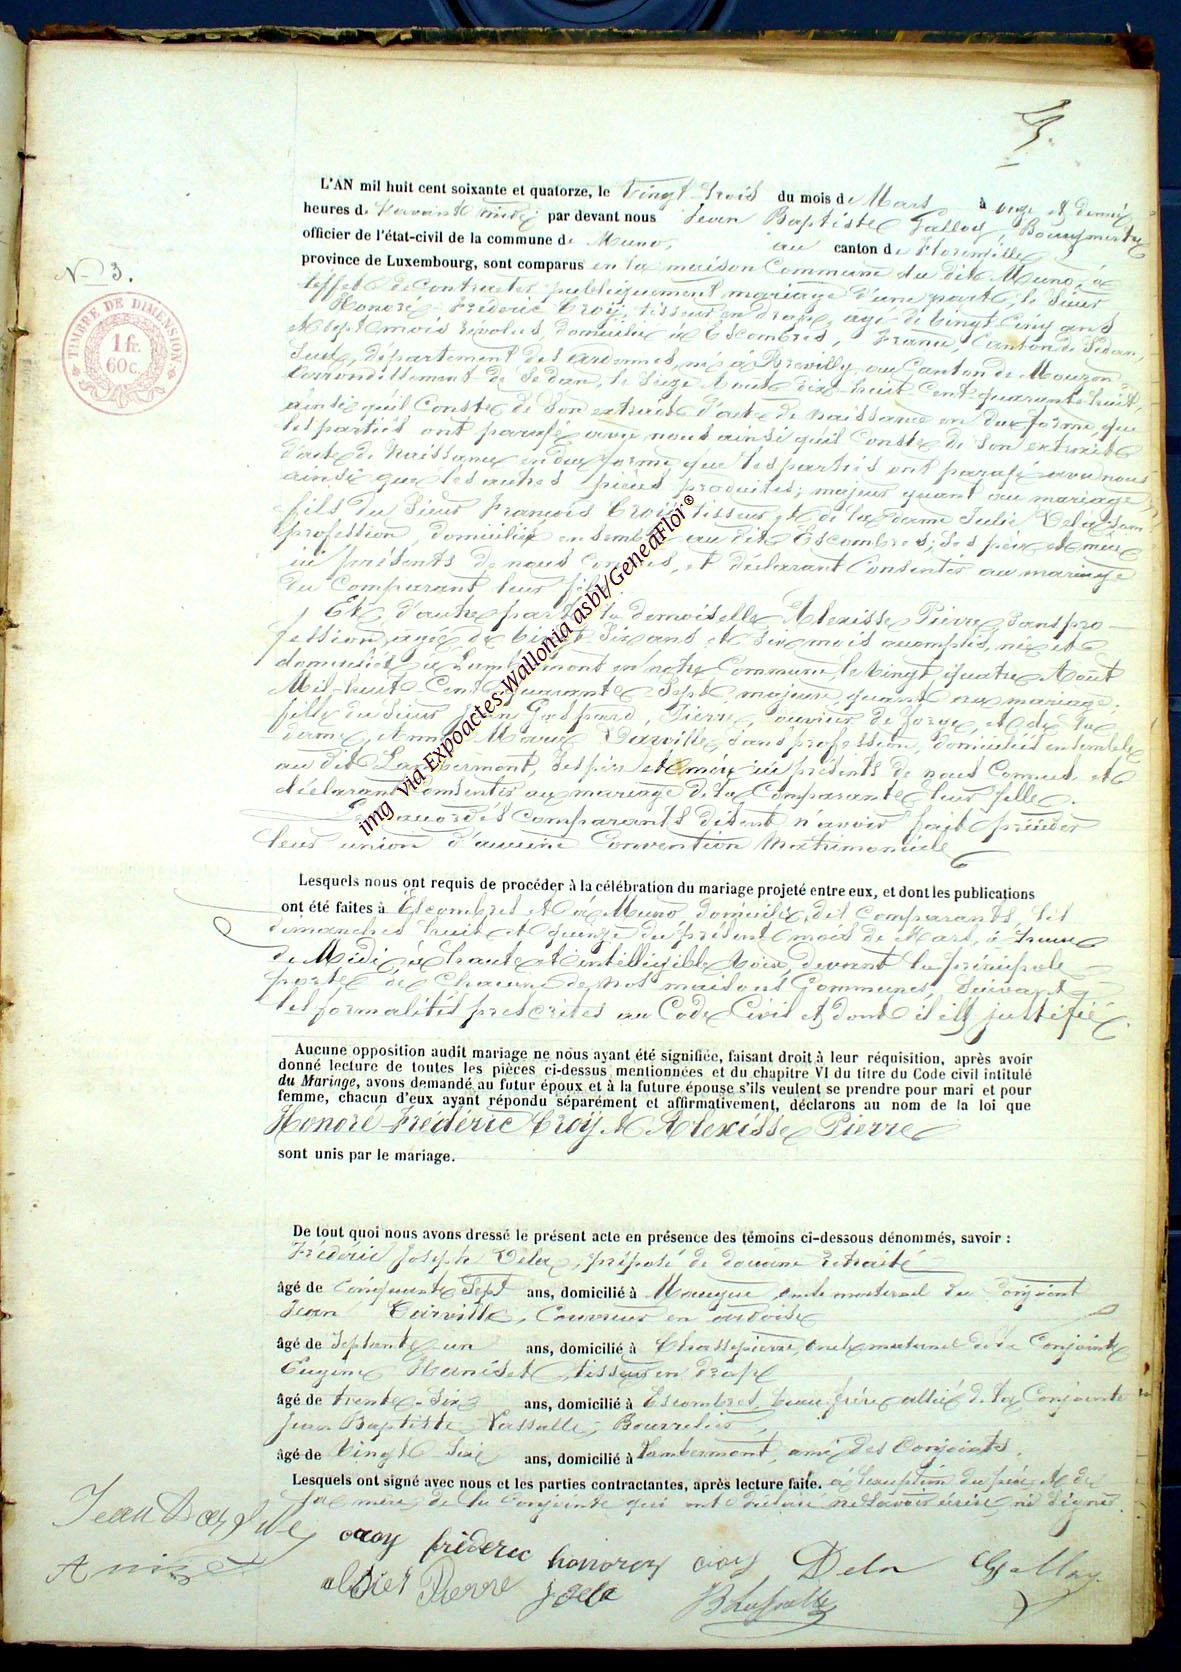 3.
N° 3.
TIMBRE DE DIMENSION
1 fr.
60 c.
L'AN mil huit cent soixante et quatorze, le vingt trois du mois de Mars à onze et demie
heures de devant midi par devant nous Jean Baptiste Galloy, Bourgmestre
officier de l'état-civil de la commune de Muno, au canton de Florenville
province de Luxembourg, sont comparus en la maison Commune du dit Muno, à
l'effet de contracter publiquement mariage d'une part, le Sieur
Honoré-Fréderic Croÿ, tisseur en drap, agé de vingt cinq ans
sept mois revolus domicilié à Escombres, France, Canton de Sedan,
Sud, département des ardennes, né à Brevilly, au Canton de Mouzon,
arrondissement de Sedan, le Août dix-huit-Cent quarante huit,
ainsi qu'il Conste de Son extrait d'acte de naissance en due forme que
les parties ont parafé avec nous ainsi qu'il Conste de Son extrait
d'acte de Naissance en due forme que les parties ont parafé avec nous
ainsi que les autres pièces produites; majeur quant au mariage,
fils du Sieur François Croÿ tisseur et de la dame Julie Dela, sans
profession domiciliés ensemble au dit Escombres; Ses père et mère
ici présents de nous Connus, et déclarant Consenter au mariage
du Comparant leur fils
Et d'autre part la demoiselle Alexisse Pierre, Sans pro-
fession, agée de vingt Six ans et Six mois accomplis, née et
domiciliée à Lambermont en notre Commune, le vingt quatre Août
Mil-huit-Cent quarante Sept, majeure quant au mariage,
fille du Sieur Jean Gaspard, Pierre, ouvrier de forge, et de la
dame, Anne Marie Darville, Sans profession, domiciliés ensemble
au dit Lambermont, Ses père et mère ici présents de nous Connus et
déclarant Consenter au mariage de la Comparante leur fille.
Les accordés Comparants disent n'avoir fait précéder
leur union d'aucune Convention Matrimoniale
Lesquels nous ont requis de procéder à la célébration du mariage projeté entre eux, et dont les publications
ont été faites à Escombres et à Muno domicile des Comparants, les
dimanches huit et quinze du présent mois de Mars, à l'heure
de Midi, à haute et intelligible Voix, devant la principale
porte de Chacune de nos maisons Communes, Suivant
les formalités prescrites au Code Civil et dont il est justifié.
Aucune opposition audit mariage ne nous ayant été signifiée, faisant droit à leur réquisition, après avoir
donné lecture de toutes les pièces ci-dessus mentionnées et du chapitre VI du titre du Code civil intitulé
du Mariage, avons demandé au futur époux et à la future épouse s'ils veulent se prendre pour mari et pour
femme, chacun d'eux ayant répondu séparément et affirmativement, déclarons au nom de la loi que
Honoré-Frédéric Croÿ et Alexisse Pierre
sont unis par le mariage.
De tout quoi nous avons dressé le présent acte en présence des témoins ci-dessous dénommés, savoir :
Fréderic Joseph Dela, préposé de douane retraité
âgé de Cinquante Sept ans, domicilié à oncle maternel du Conjoint
Jean Darville, Couvreur en ardoise
âgé de Septante-un ans, domicilié à Chassepierre, oncle maternel de la Conjointe
Eugène tisseur en Drap
âgé de trente-Six ans, domicilié à Escombres, beau frère allié de la Conjointe
Jean Baptiste Lassalle, Bourrelier,
âgé de Vingt-Six ans, domicilié à Lambermont, ami des Conjoints.
Lesquels ont signé avec nous et les parties contractantes, après lecture faite. à l'exception du père et de
la mère de la Conjointe qui ont déclaré ne Savoir écrire, ni Signer.
croy frederec honorez croy Dela Galloy
Pierre
img via Expoactes-Wallonia asbl/GeneaFlor®